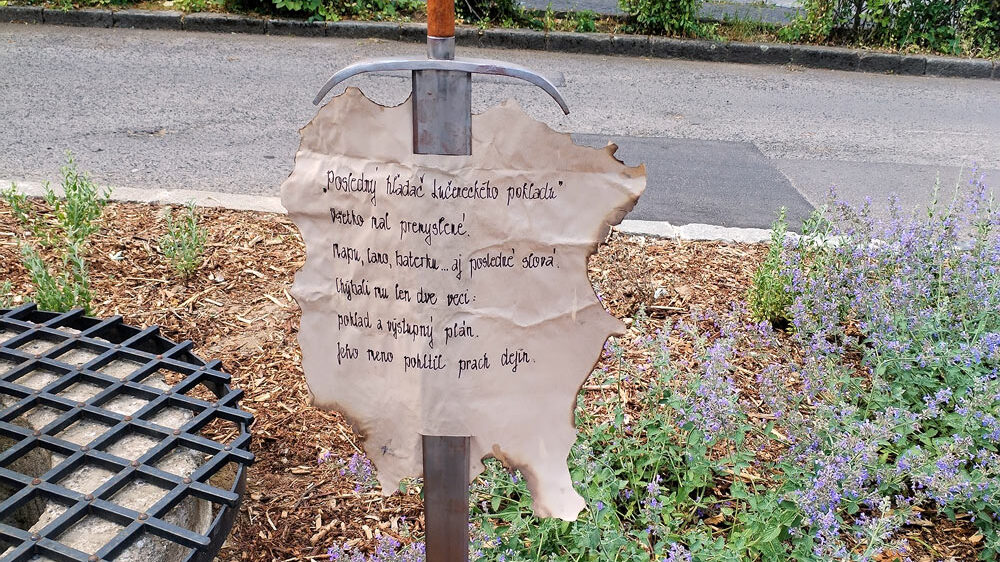 „Posledný hľadač Lučeneckého pokladu"
Všetko mal premyslené.
Mapu, lano, baterku... aj posledné slová.
Chýbali mu len dve veci:
poklad a výstupný plán.
Jeho meno pohltil prach dejín.